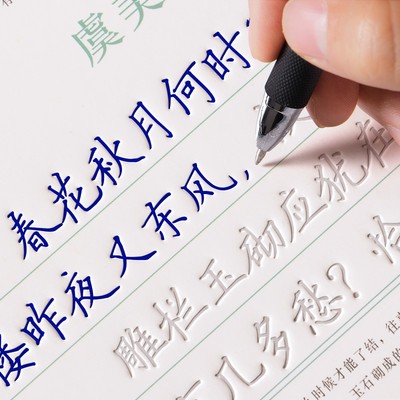 虞美
春花秋月何时
楼昨夜又东风，
雕栏玉砌应犹在
几多愁？恰
时候才能了结，往
玉石砌成的